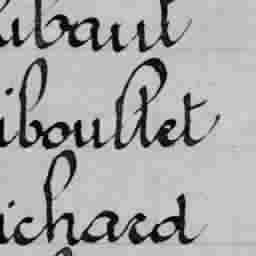 ibaut
iboullet
ichard